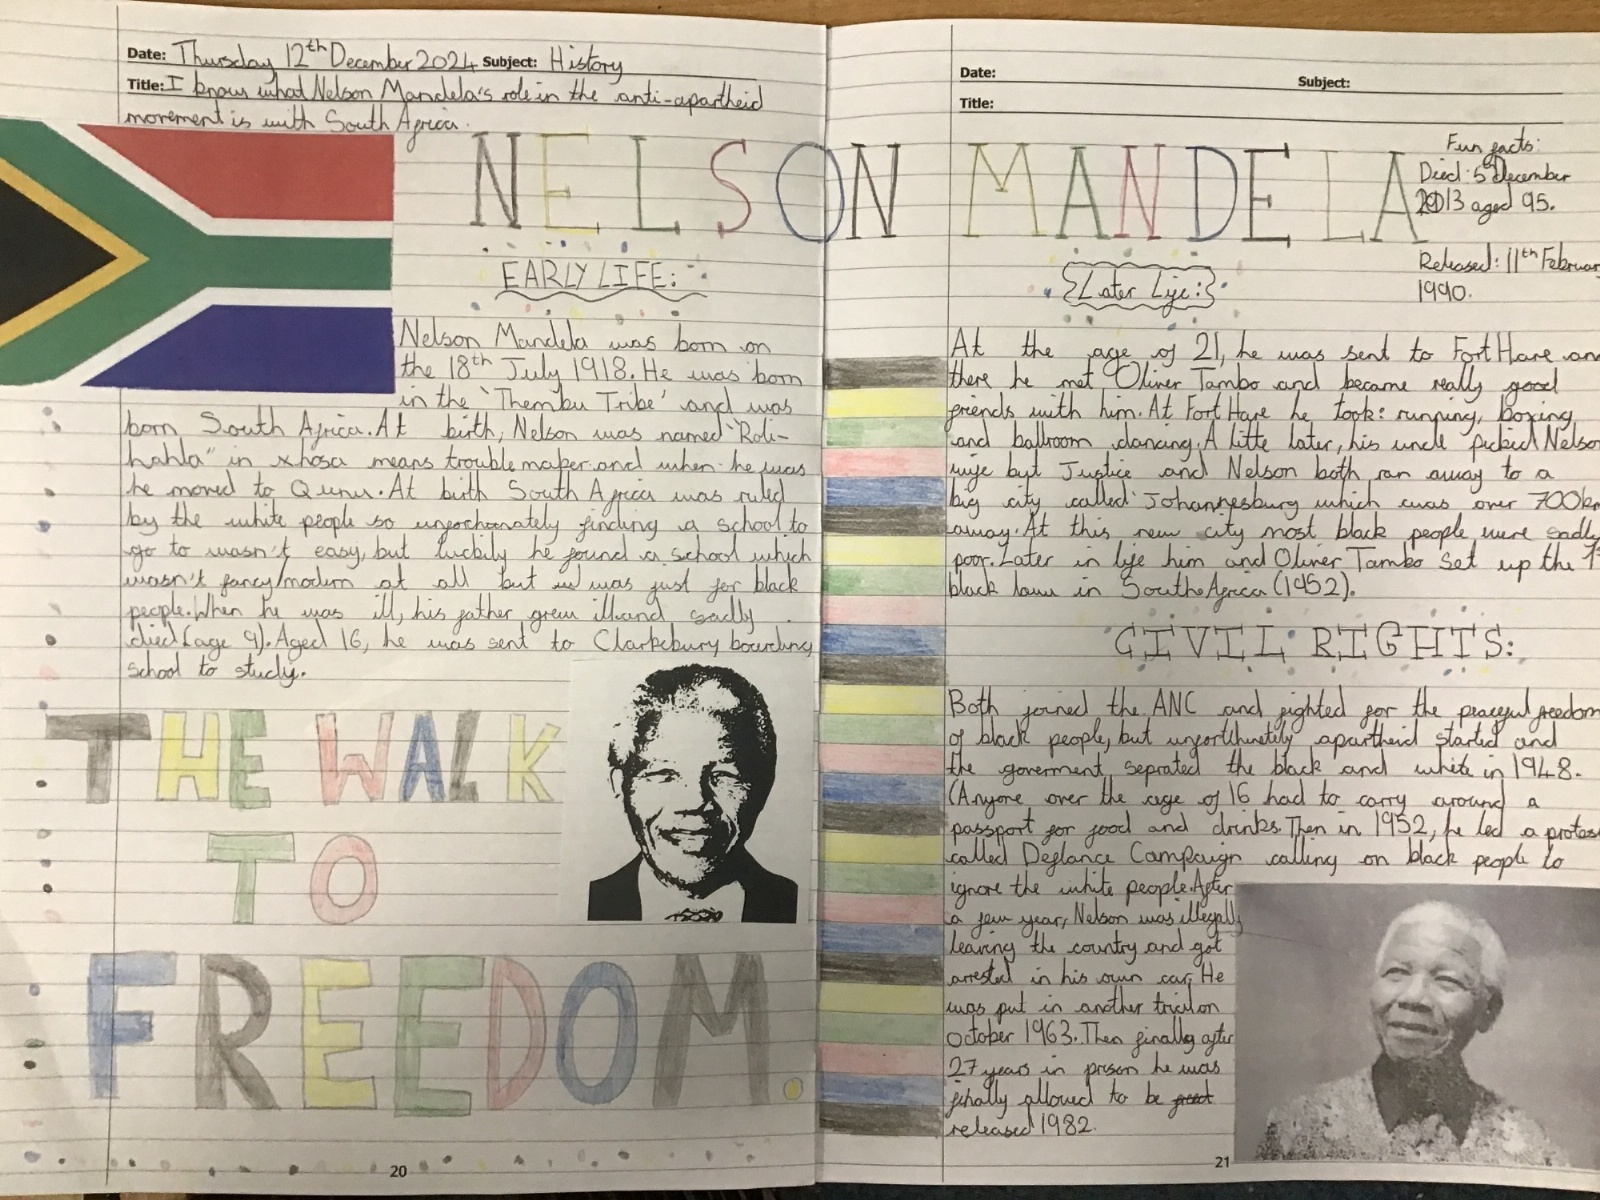 Date: Thursday 12th December 2024 Subject: History
Title: I know what Nelson Mandela's role in the anti-apartheid
movement is with South Africa.
NELSON MANDELA
EARLY LIFE:
Nelson Mandela was born on
the 18th July 1918. He was born
in the 'Thembu Tribe' and was
born South Africa. At birth, Nelson was named "Roli-
hahla" in xhosa means trouble maker and when he was
he moved to Qunu. At birth South Africa was ruled
by the white people so unforchanately finding a school to
go to wasn't easy, but luckily he found a school which
wasn't fancy/modern at all but was just for black
people. When he was ill, his father grew ill and sadly
died (age 9). Aged 16, he was sent to Clarkebury boarding
school to study.
THE WALK
TO
FREEDOM.
20
Date: Subject:
Title:
Fun facts:
Died: 5 December
2013 aged 95.
Released: 11th Februar
1990.
Later Life:
At the age of 21, he was sent to Fort Hare an
there he met Oliver Tambo and became really good
friends with him. At Fort Hare he took: running, boxing
and ballroom dancing. A litte later, his uncle picked Nelson
wife but Justice and Nelson both ran away to a
big city called Johannesburg which was over 700km
away. At this new city most black people were sadly
poor. Later in life him and Oliver Tambo set up the 1
black law in South Africa (1952).
CIVIL RIGHTS:
Both joined the ANC and fighted for the peaceful freedom
of black people, but unfortunetely apartheid started and
the goverment seprated the black and white in 1948.
(Anyone over the age of 16 had to carry around a
passport for food and drinks. Then in 1952, he led a protes
called Defiance Campaign calling on black people to
ignore the white people. After
a few year, Nelson was illegally
leaving the country and got
arrested in his own car, He
was put in another trial on
October 1963. Then finally after
27 years in prison he was
finally allowed to be
released 1982.
21